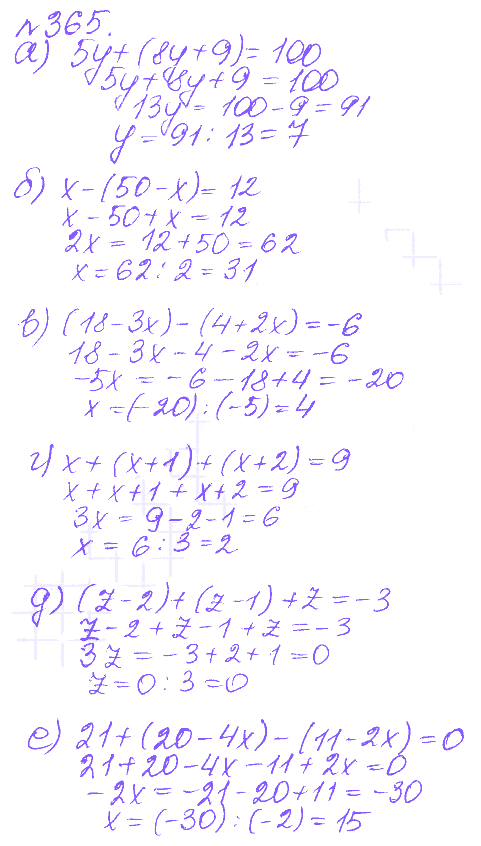 №365.
а) 5y+(8y+9)=100
5y+8y+9=100
13y=100-9=91
y=91:13=7
б) x-(50-x)=12
x-50+x=12
2x=12+50=62
x=62:2=31
в) (18-3x)-(4+2x)=-6
18-3x-4-2x=-6
-5x=-6-18+4=-20
x=(-20):(-5)=4
г) x+(x+1)+(x+2)=9
x+x+1+x+2=9
3x=9-2-1=6
x=6:3=2
д) (z-2)+(z-1)+z=-3
z-2+z-1+z=-3
3z=-3+2+1=0
z=0:3=0
е) 21+(20-4x)-(11-2x)=0
21+20-4x-11+2x=0
-2x=-21-20+11=-30
x=(-30):(-2)=15